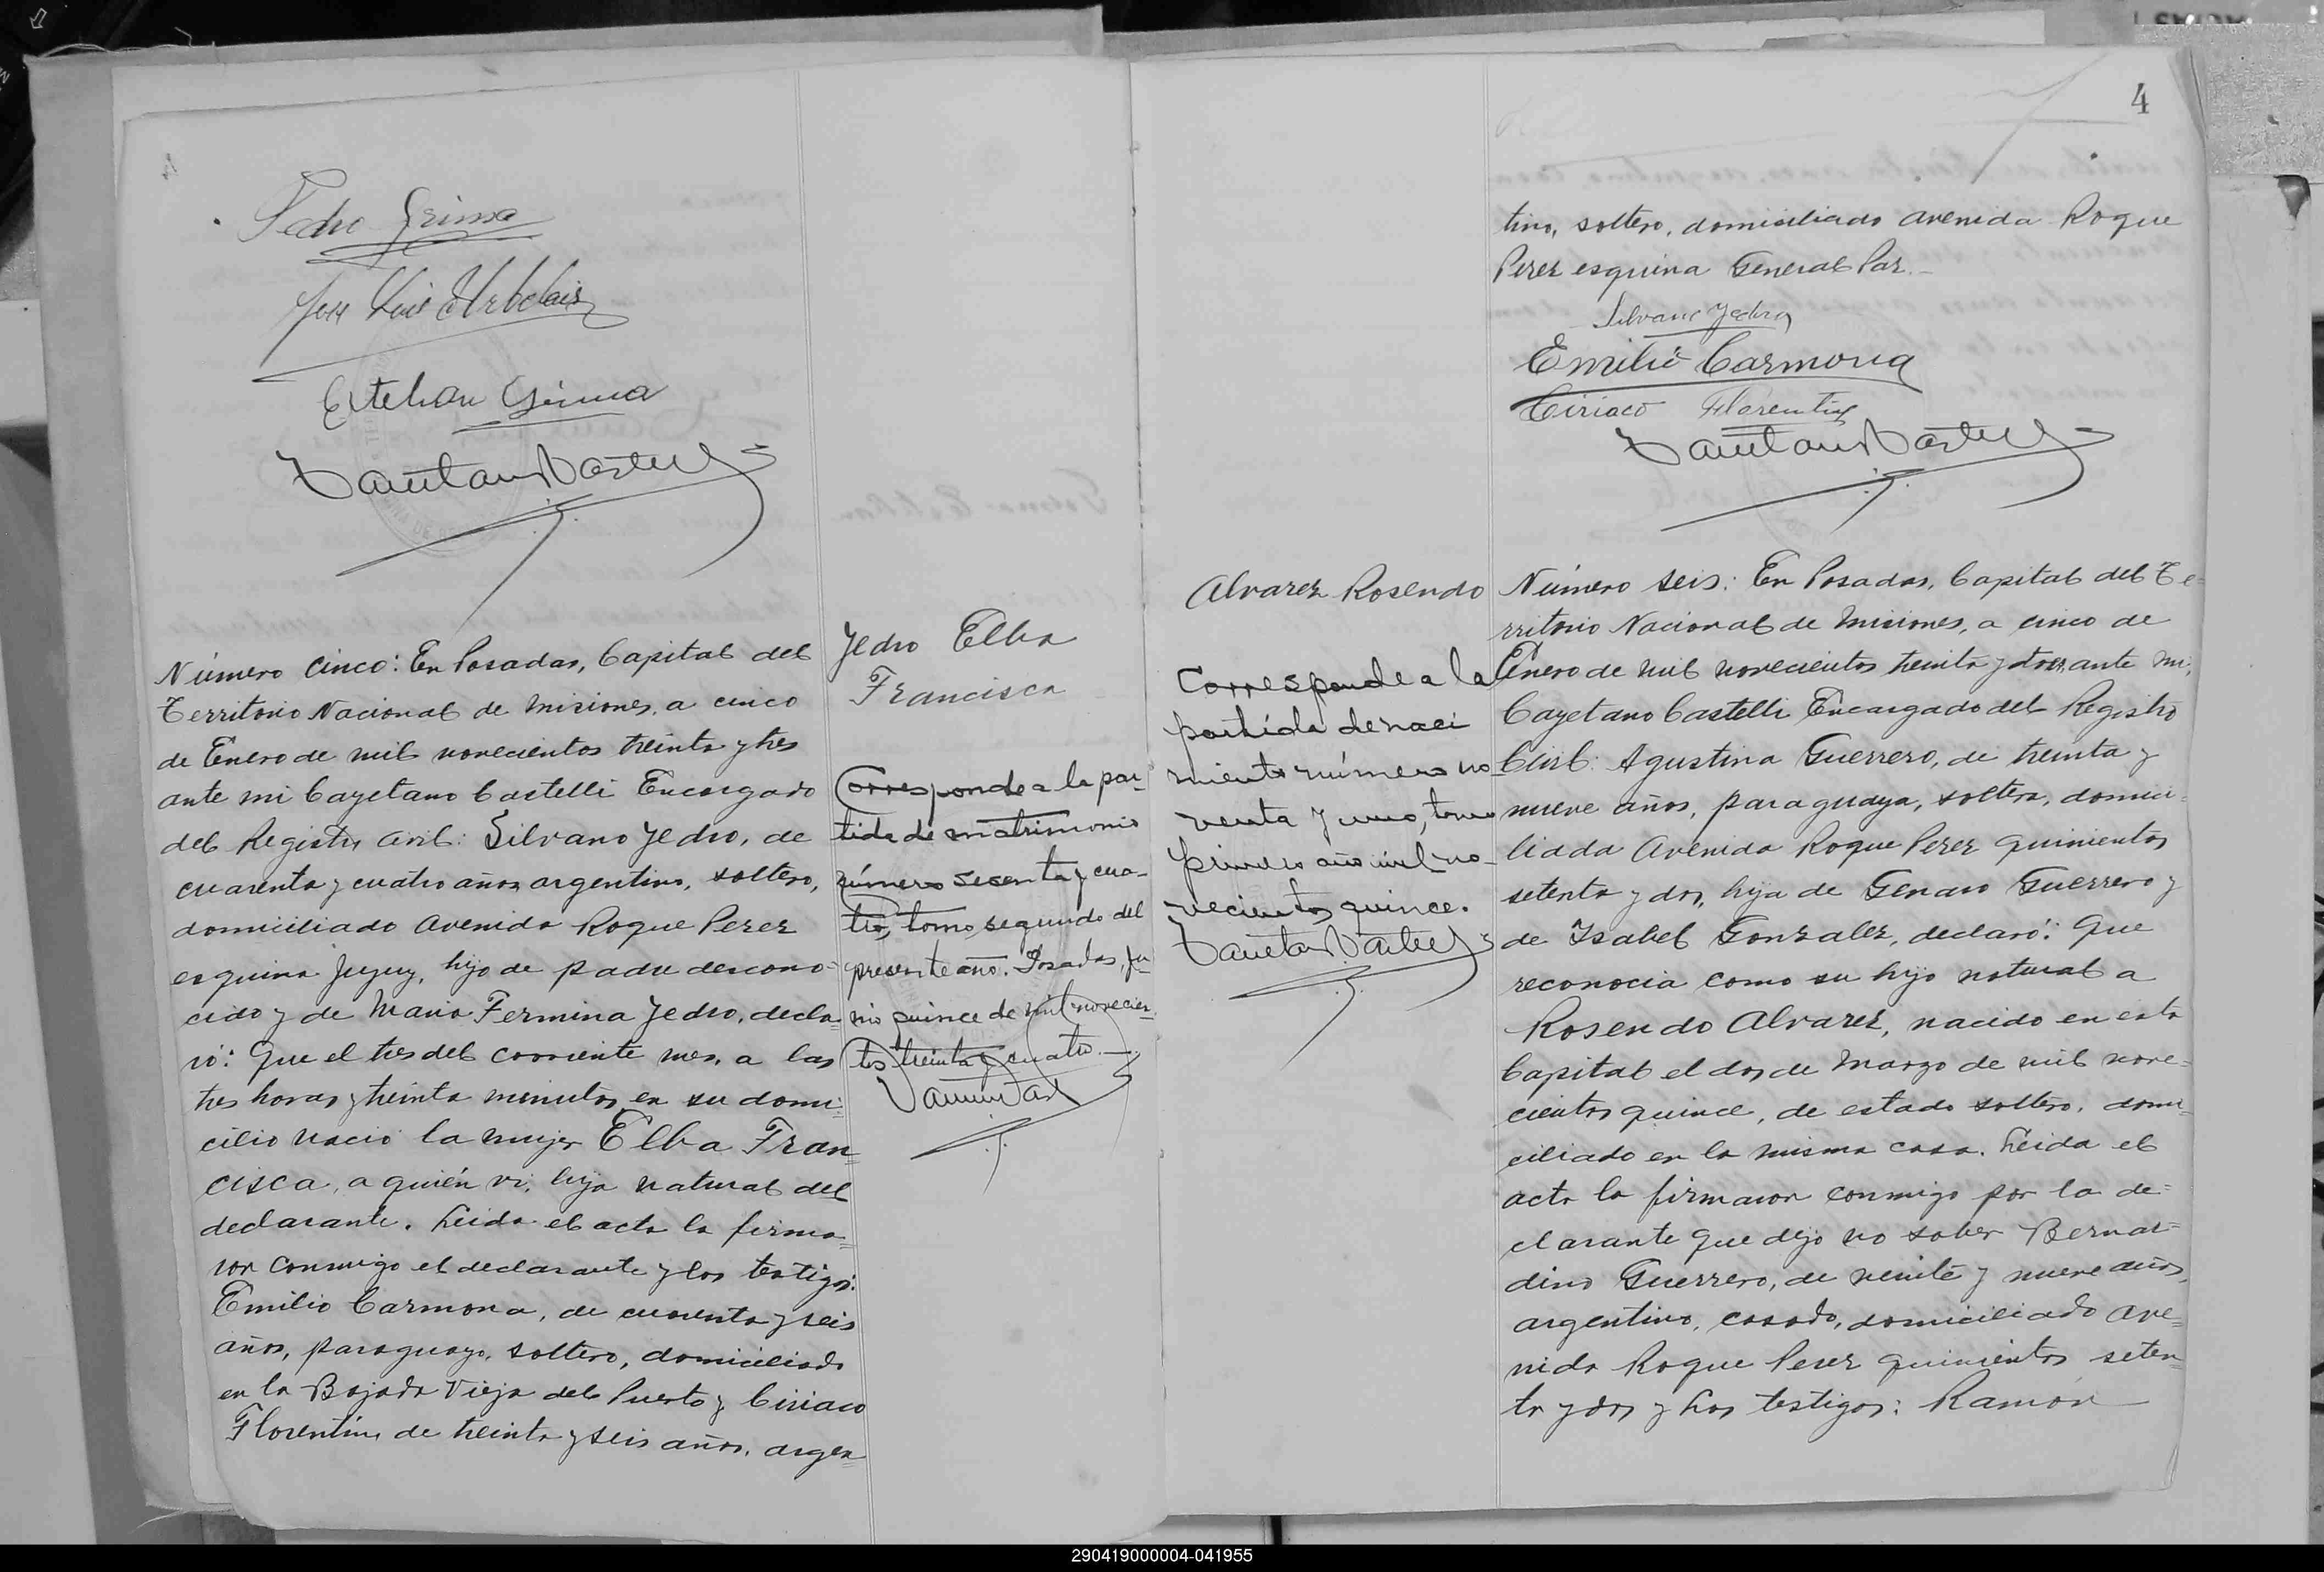 Pedro Grima
José Luis
Esteban Grima
Número cinco: En Posadas, Capital del
Territorio Nacional de Misiones, a cinco
de Enero de mil novecientos treinta y tres
ante mi Cayetano Castelli Encargado
del Registro Civil: Silvano Jedro, de
cuarenta y cuatro años argentino, soltero,
domiciliado Avenida Roque Perez
esquina Jujuy, hijo de padre descono-
cido y de Maria Fermina Jedro, decla-
ró: Que el tres del corriente mes, a las
tres horas y treinta minutos en su domi-
cilio nació la mujer Elba Fran=
cisca, a quién vi, hija natural del
declarante. Leida el acta la firma=
ron conmigo el declarante y los testigos:
Emilio Carmona, de cuarenta y seis
años, paraguayo, soltero, domiciliado
en la Bajada Vieja del Puerto y Ciriaco
Florentín, de treinta y seis años, argen=
Jedro Elba
Francisca
Corresponde a la par-
tida de matrimonio
número sesenta y cua-
tro, tomo segundo del
presente año. Posadas, Ju-
nio quince de mil novecien-
tos treinta y cuatro.—
4
tino, soltero, domiciliado avenida Roque
Perez esquina General Paz.—
Silvano Jedro
Emilio Carmona
Ciriaco Florentin
Alvarez Rosendo
Corresponde a la
partida de naci
miento número no-
venta y uno, tomo
primero año mil no-
vecientos quince.
Número seis: En Posadas, Capital del Te=
rritorio Nacional de Misiones, a cinco de
Enero de mil novecientos treinta y tres, ante mi,
Cayetano Castelli Encargado del Registro
Civil: Agustina Guerrero, de treinta y
nueve años, paraguaya, soltera, domici-
liada Avenida Roque Perez quinientos
setenta y dos, hija de Genaro Guerrero y
de Isabel Gonzalez, declaró: Que
reconocia como su hijo natural a
Rosendo Alvarez, nacido en esta
Capital el dos de Marzo de mil nove-
cientos quince, de estado soltero, domi-
ciliado en la misma casa. Leida el
acta la firmaron conmigo por la de=
clarante que dijo no saber Bernar=
dino Guerrero, de veinte y nueve años,
argentino, casado, domiciliado Ave=
nida Roque Perez quinientos seten=
ta y dos y los testigos: Ramón
290419000004-041955